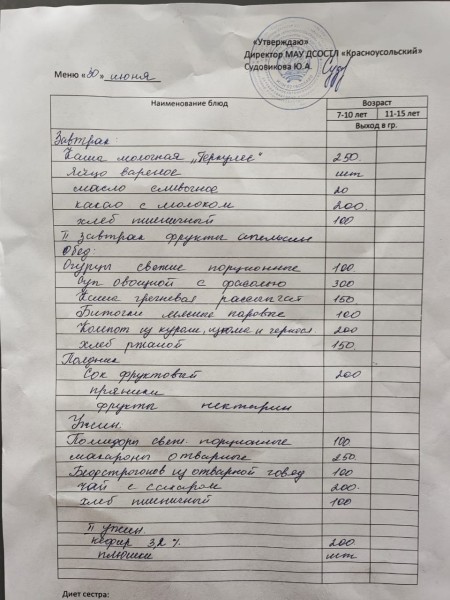 «Утверждаю»
Директор МАУ ДСОСТЛ «Красноусольский»
Судовикова Ю.А.
Меню «30» июня
Наименование блюд
Возраст
7-10 лет 11-15 лет
Выход в гр.
Завтрак:
Каша молочная „Геркулес“ 250.
Яйцо вареное шт
масло сливочное 20
какао с молоком 200.
хлеб пшеничный 100
II завтрак фрукты апельсин
Обед:
Огурцы свежие порционные 100.
Суп овощной с фасолью 300
Каша гречневая рассыпчат 150
Биточки мясные паровые 100
Компот из кураги, изюма и 200
хлеб ржаной 150.
Полдник
Сок фруктовый 200
пряники
фрукты нектарин
Ужин.
Помидоры свеж. порционные 100
макароны отварные 250.
Бефстрогонов из отварной говяд 100
чай с сахаром 200.
хлеб пшеничный 100
II ужин.
кефир 3,2 % 200
плюшки шт
Диет сестра: